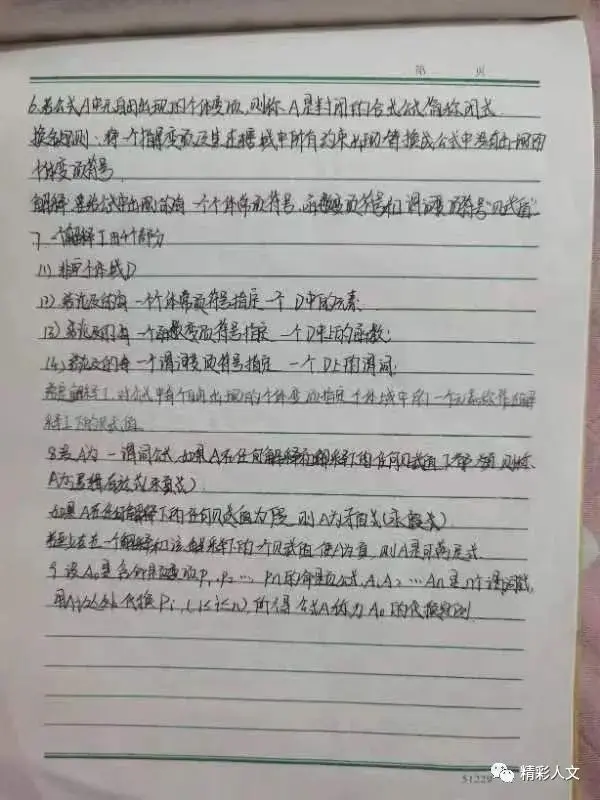 第 页
6.若公式A中无自由出现的个体变项,则称A是封闭的合式公式,简称闭式.
换名规则:将一个指导变项及其在辖域中所有约束出现替换成公式中没有出现的
个体变项符号.
解释:要给公式中出现的每一个个体常项符号,函数变项符号和谓词变项符号"
7.一个解释I由4个部分
(1)非空个体域D
(2)若涉及的每一个个体常项符号指定一个D中的元素
(3)若涉及的每一个函数变项符号指定一个D上的函数;
(4)若涉及的每一个谓词变项符号指定一个D上的谓词;
解释I,对公式中每个自由出现的个体变项指定个体域中的一个元素称作在解
释I下的赋值.
8.若A为一谓词公式,如果A在任何解释和解释下的任何赋值下都为真,则称
A为逻辑有效式(永真式)
如果A在任何解释下的任何赋值均为假,则A为矛盾式(永假式)
若至少存在一个解释和该解释下的一个赋值,使A为真,则A是可满足式
9.设A₀是含命题变项P₁,P₂…Pn的命题公式,A₁A₂…An是n个谓词公式,
用Ai处处代换Pi,(1≤i≤n),所得公式A称为A₀的代换实例
51229
精彩人文